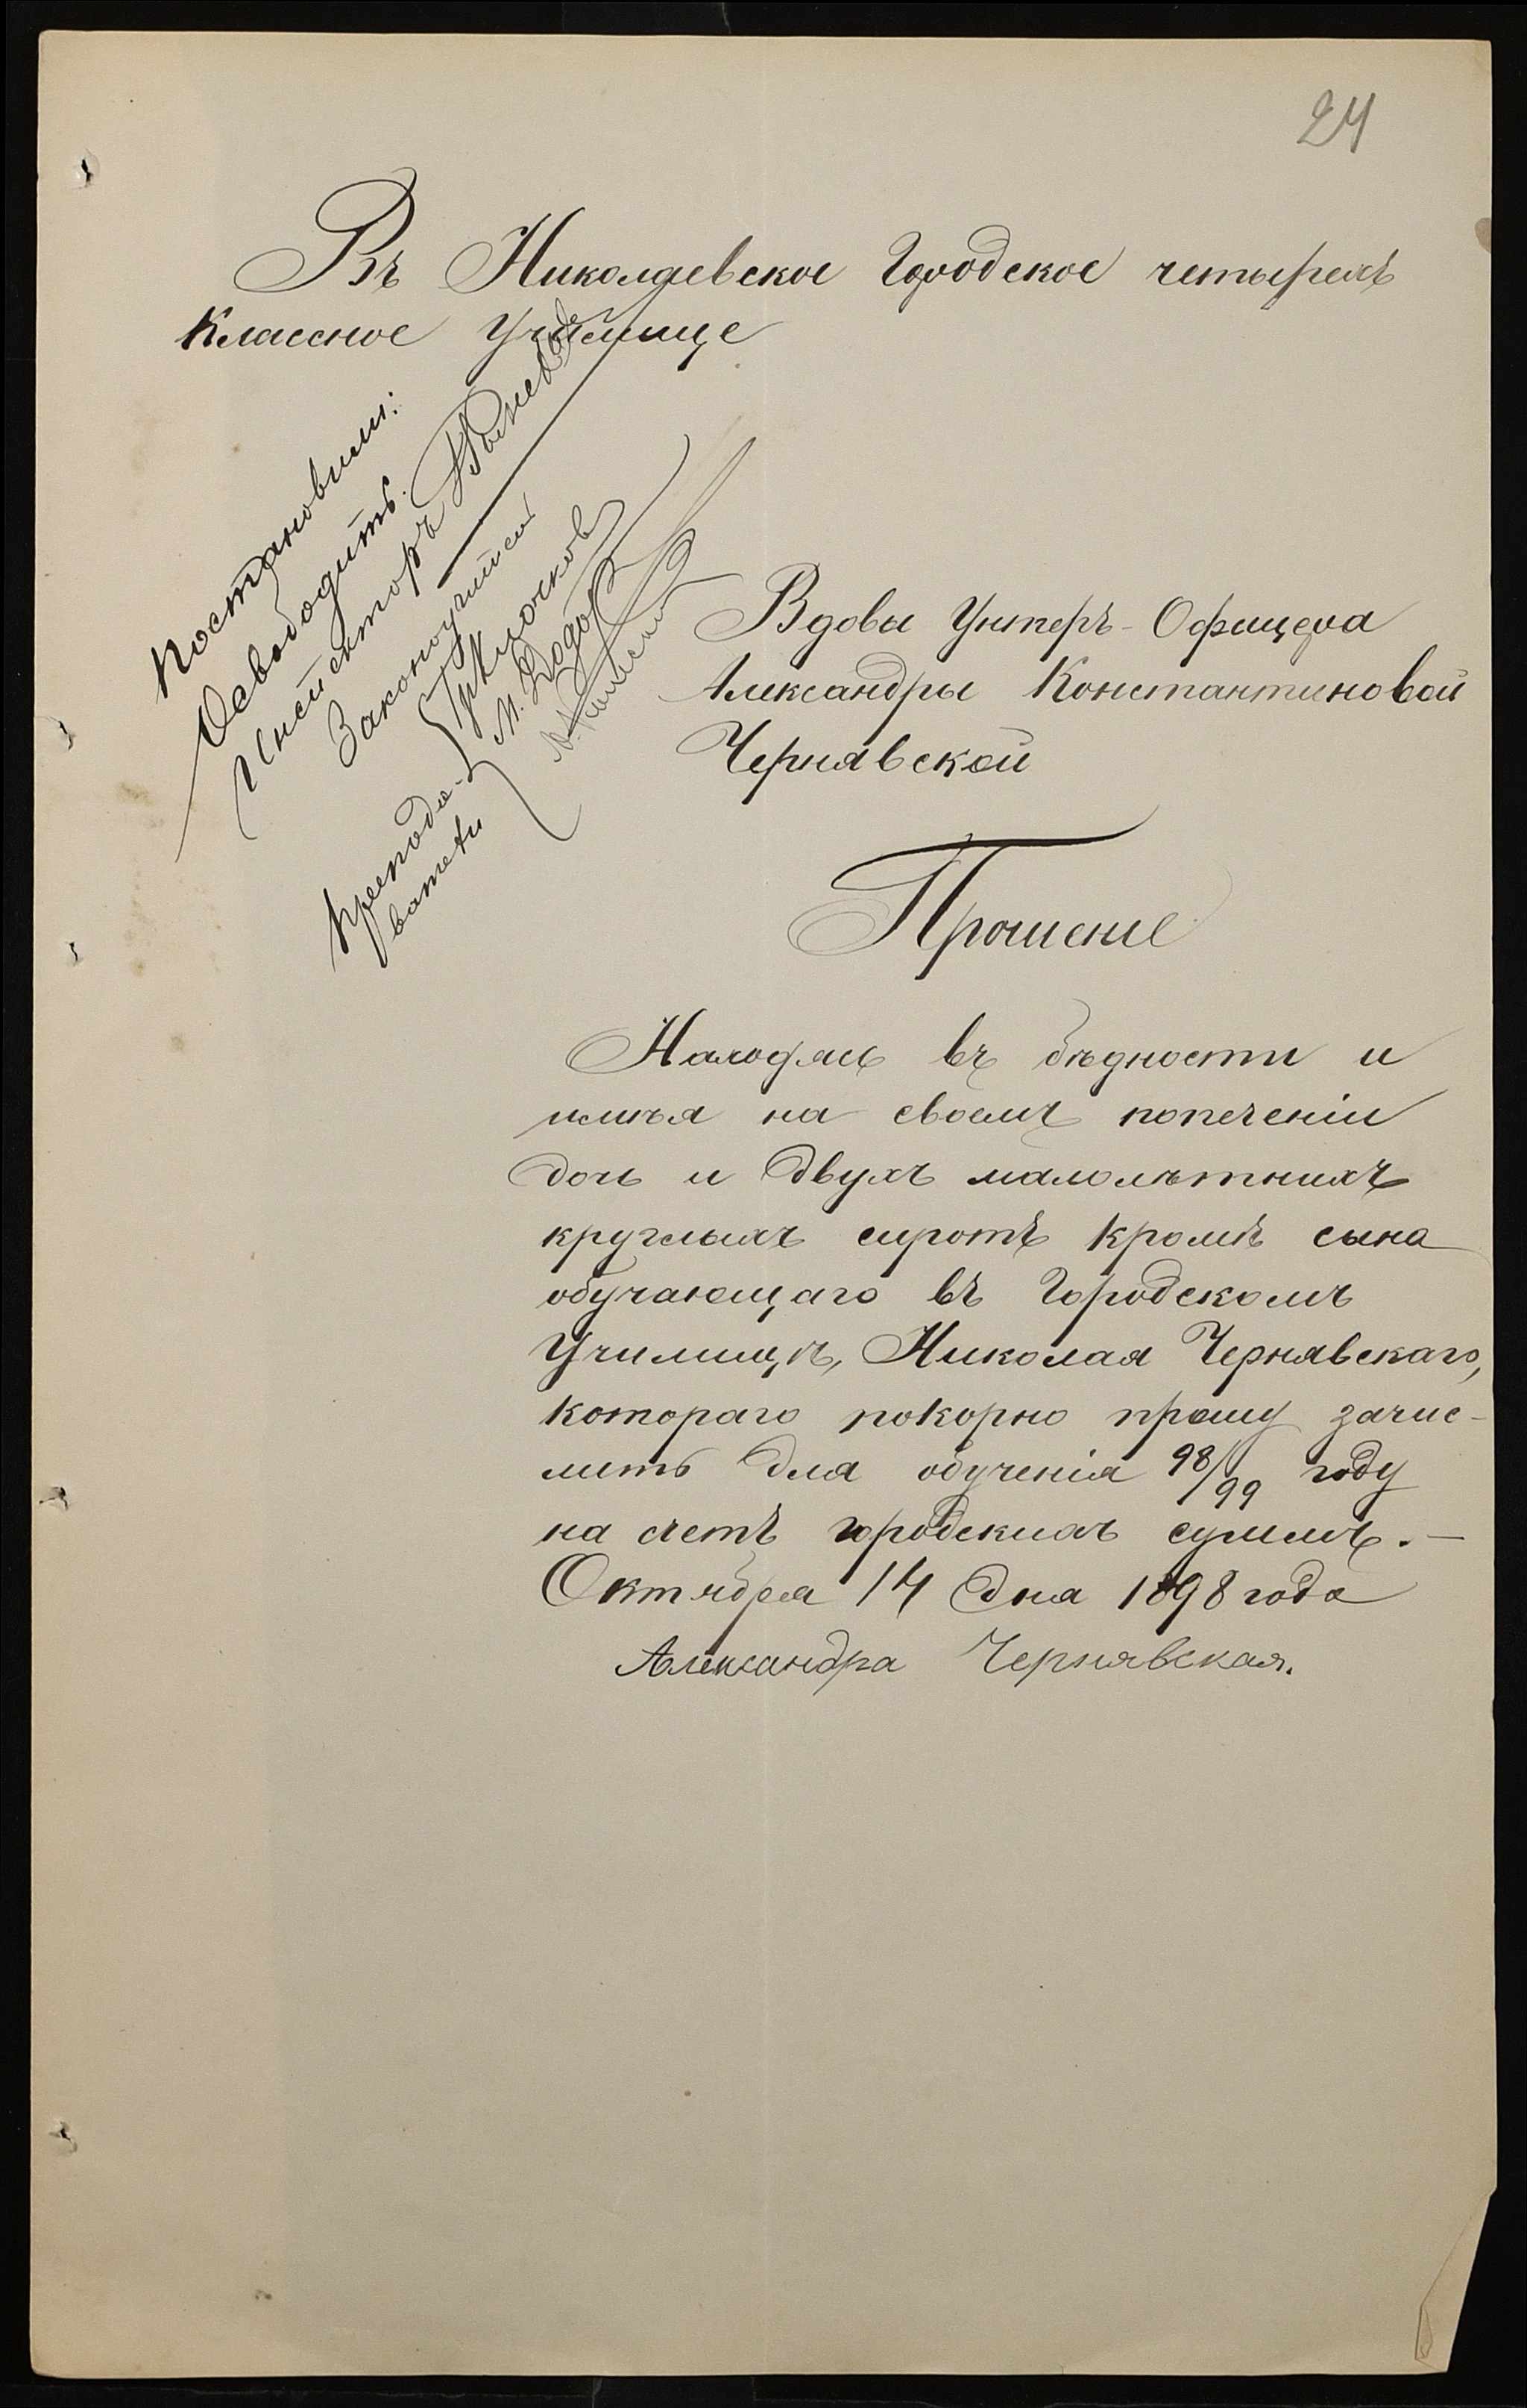 24
Въ Николаевское Городское четырехъ
классное училище
Постановили:
Освободить.
Инспекторъ
Законоучитель
Препода-
ватели
Вдовы Унтеръ-Офицера
Александры Константиновой
Чернявской
Прошение
Находясь въ бѣдности и
имѣя на своемъ попеченіи
дочь и двухъ малолѣтнихъ
круглыхъ сиротъ кромѣ сына
обучающаго въ Городскомъ
Училищѣ, Николая Чернявскаго,
котораго покорно прошу зачис-
лить для обученія 98/99 году
на счетъ городскихъ суммъ. —
Октября 14 дня 1898 года
Александра Чернявская.